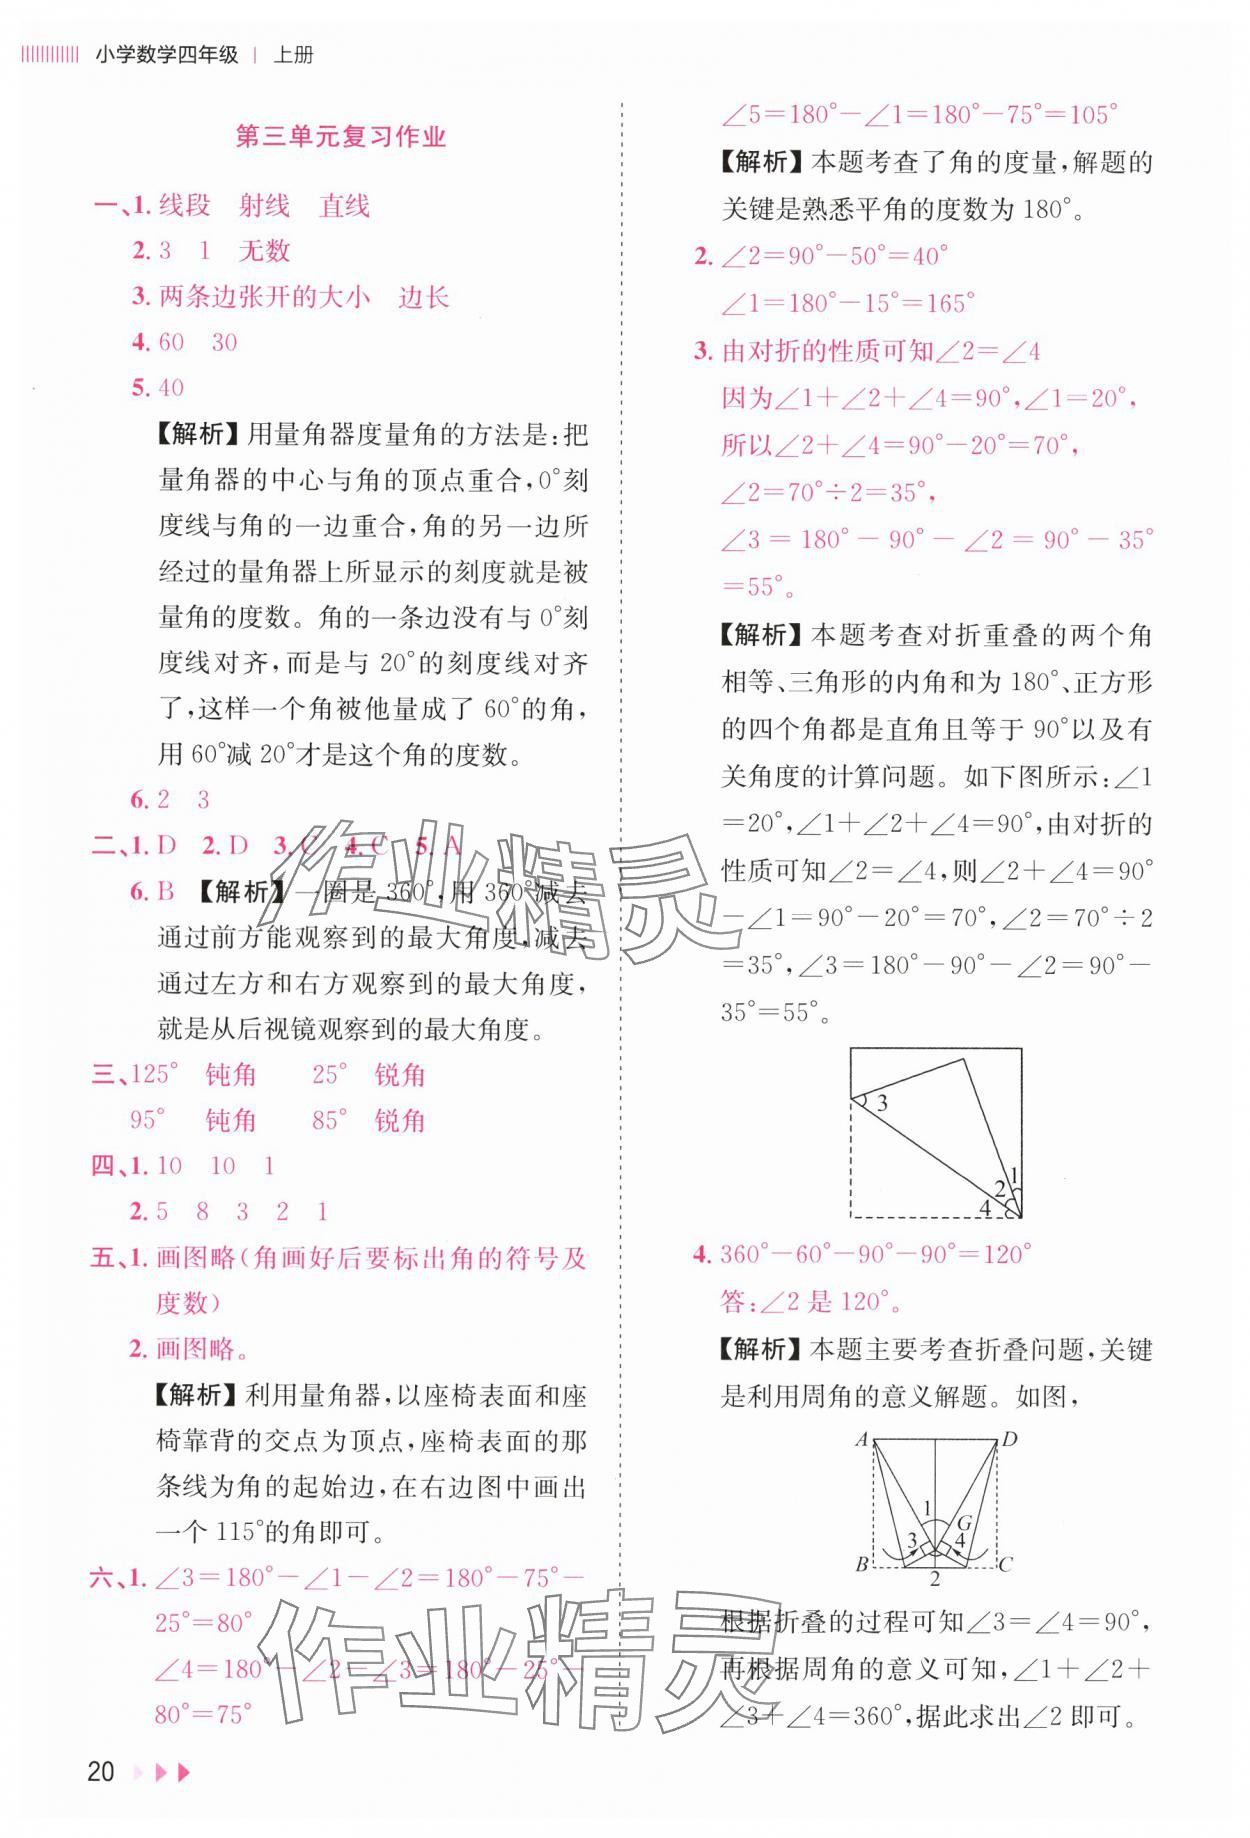 小学数学四年级 | 上册
第三单元复习作业
一、1. 线段 射线 直线
2. 3 1 无数
3. 两条边张开的大小 边长
4. 60 30
5. 40
【解析】用量角器度量角的方法是:把
量角器的中心与角的顶点重合,0°刻
度线与角的一边重合,角的另一边所
经过的量角器上所显示的刻度就是被
量角的度数。角的一条边没有与0°刻
度线对齐,而是与20°的刻度线对齐
了,这样一个角被他量成了60°的角,
用60°减20°才是这个角的度数。
6. 2 3
二、1. D 2. D 3. C 4. C 5. A
6. B 【解析】一圈是360°,用360°减去
通过前方能观察到的最大角度,减去
通过左方和右方观察到的最大角度,
就是从后视镜观察到的最大角度。
三、125° 钝角 25° 锐角
95° 钝角 85° 锐角
四、1. 10 10 1
2. 5 8 3 2 1
五、1. 画图略(角画好后要标出角的符号及
度数)
2. 画图略。
【解析】利用量角器,以座椅表面和座
椅靠背的交点为顶点,座椅表面的那
条线为角的起始边,在右边图中画出
一个115°的角即可。
六、1. ∠3=180°-∠1-∠2=180°-75°-
25°=80°
∠4=180°-∠2-∠3=180°-25°-
80°=75°
∠5=180°-∠1=180°-75°=105°
【解析】本题考查了角的度量,解题的
关键是熟悉平角的度数为180°。
2. ∠2=90°-50°=40°
∠1=180°-15°=165°
3. 由对折的性质可知∠2=∠4
因为∠1+∠2+∠4=90°,∠1=20°,
所以∠2+∠4=90°-20°=70°,
∠2=70°÷2=35°,
∠3=180°-90°-∠2=90°-35°
=55°。
【解析】本题考查对折重叠的两个角
相等、三角形的内角和为180°、正方形
的四个角都是直角且等于90°以及有
关角度的计算问题。如下图所示:∠1
=20°,∠1+∠2+∠4=90°,由对折的
性质可知∠2=∠4,则∠2+∠4=90°
-∠1=90°-20°=70°,∠2=70°÷2
=35°,∠3=180°-90°-∠2=90°-
35°=55°。
3
1
2
4
4. 360°-60°-90°-90°=120°
答:∠2是120°。
【解析】本题主要考查折叠问题,关键
是利用周角的意义解题。如图,
A D
1
G
3 4
B 2 C
根据折叠的过程可知∠3=∠4=90°,
再根据周角的意义可知,∠1+∠2+
∠3+∠4=360°,据此求出∠2即可。
20
作业精灵
作业精灵